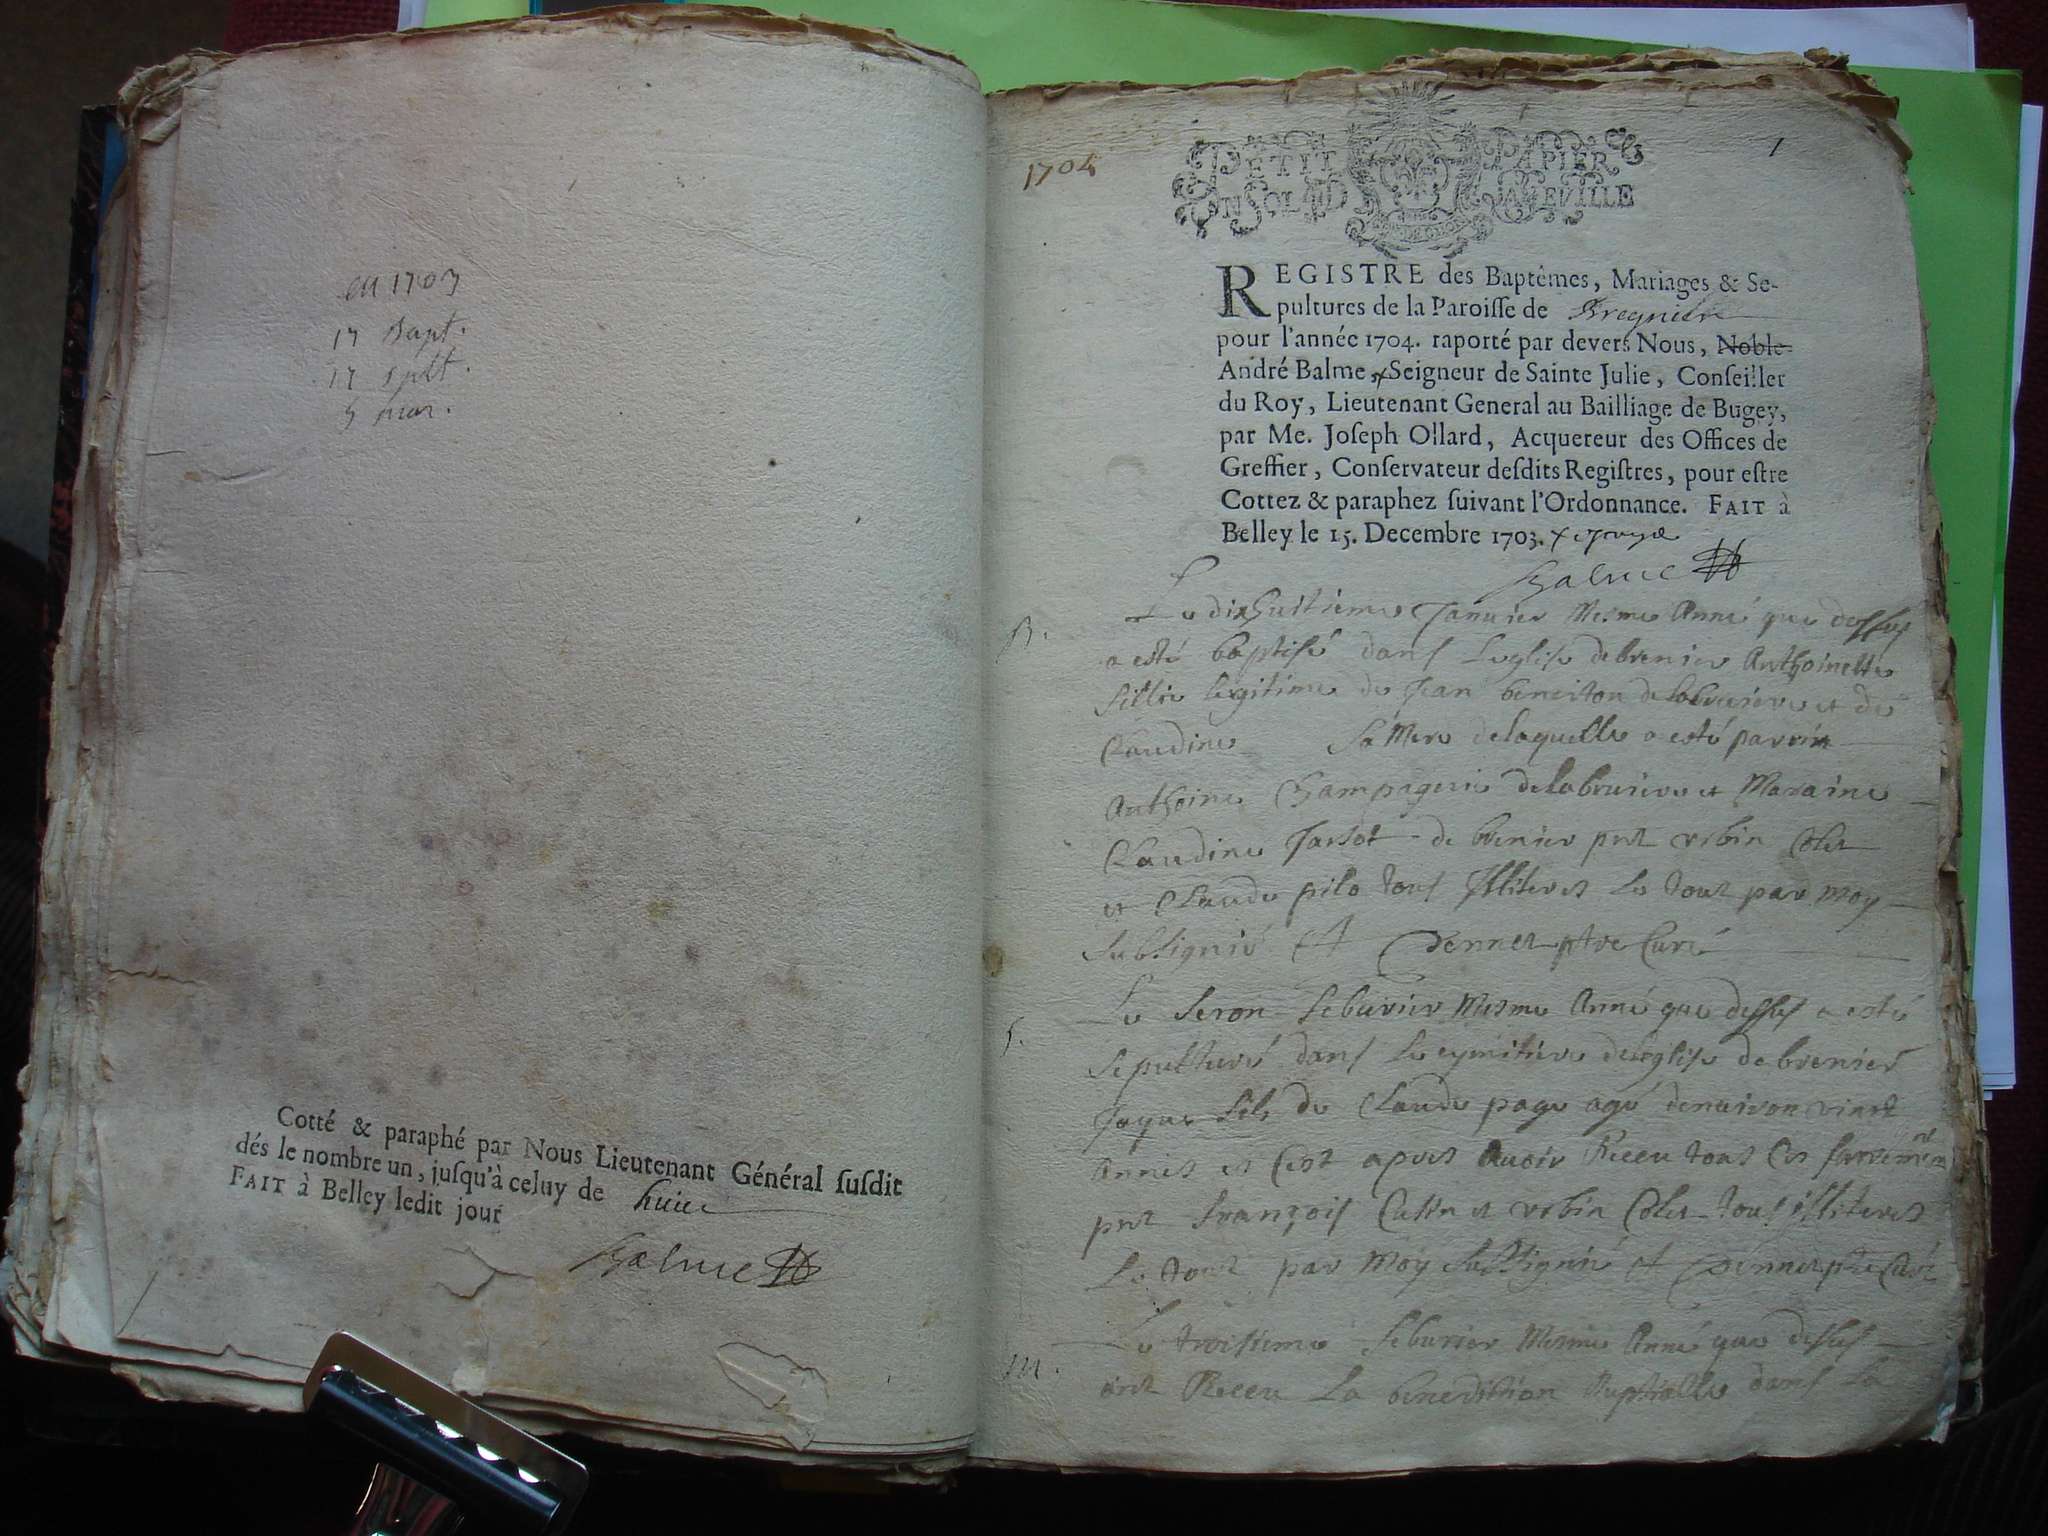 en 1703
17 Bapt.
17 splt.
5 mar.
Cotté & paraphé par Nous Lieutenant Général susdit
dés le nombre un, jusqu'à celuy de huict
FAIT à Belley ledit jour
Balme
1704
1
PETIT PAPIER
UN SOL LA FEUILLE
REGISTRE des Baptêmes, Mariages & Se-
pultures de la Paroisse de Bregnier
pour l'année 1704. raporté par devers Nous, Noble
André Balme, Seigneur de Sainte Julie, Conseiller
du Roy, Lieutenant General au Bailliage de Bugey,
par Me. Joseph Ollard, Acquereur des Offices de
Greffier, Conservateur desdits Registres, pour estre
Cottez & paraphez suivant l'Ordonnance. FAIT à
Belley le 15. Decembre 1703.
Balme
B.
Le dixhuitieme Janvier Mesme Anné que dessus
a esté baptisé dans Leglise de brenier Anthoinette
fillie legitime de Jean beneiton de labruiere et de
Claudine sa Mere de laquelle a esté parrin
Anthoine Champagnie de labruiere et Maraine
Claudine de brenier pnt urbin Colet
et Claude pilo tous Illiteres Le tout par moy
subsignié et Dennet ptre Curé
S.
Le segon feburier Mesme Anné que dessus a esté
sepulturé dans Le cymitiere de leglise de brenier
Jaque fils de Claude page agé denuiron vint
Annés et Cest apres Auoir Receu tous Ces
pnt françois et urbin Colet tous illiteres
Le tout par Moy subsignié et Dennet ptre Curé
M.
Le troisieme feburier Mesme Anné que dessus
ont Receu La benediction Nuptialle dans La